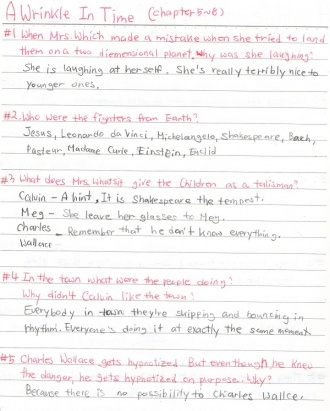 A Wrinkle In Time (chapter 5~8)
#1 When Mrs. Which made a mistake when she tried to land
them on a two diemensional planet, Why was she laughing?
She is laughing at herself. She's really terribly nice to
younger ones.
#2. Who were the fighters from Earth?
Jesus, Leonardo da Vinci, Michelangelo, Shakespeare, Bach,
Pasteur, Madame Curie, Einstein, Euclid
#3 What does Mrs. Whatsit give the Children as a talisman?
Calvin - A hint, It is Shakespeare the tempest.
Meg - She leave her glasses to Meg.
Charles - Remember that he don't know everything.
Wallace
#4 In the town what were the people doing?
Why didn't Calvin like the town?
Everybody in town they're skipping and bouncing in
rhythm. Everyone's doing it at exactly the same moment.
#5 Charles Wallace gets hypnotized. But even though he knew
the danger, he gets hypnotized on purpose. Why?
Because there is no possibility to Charles Wallce.